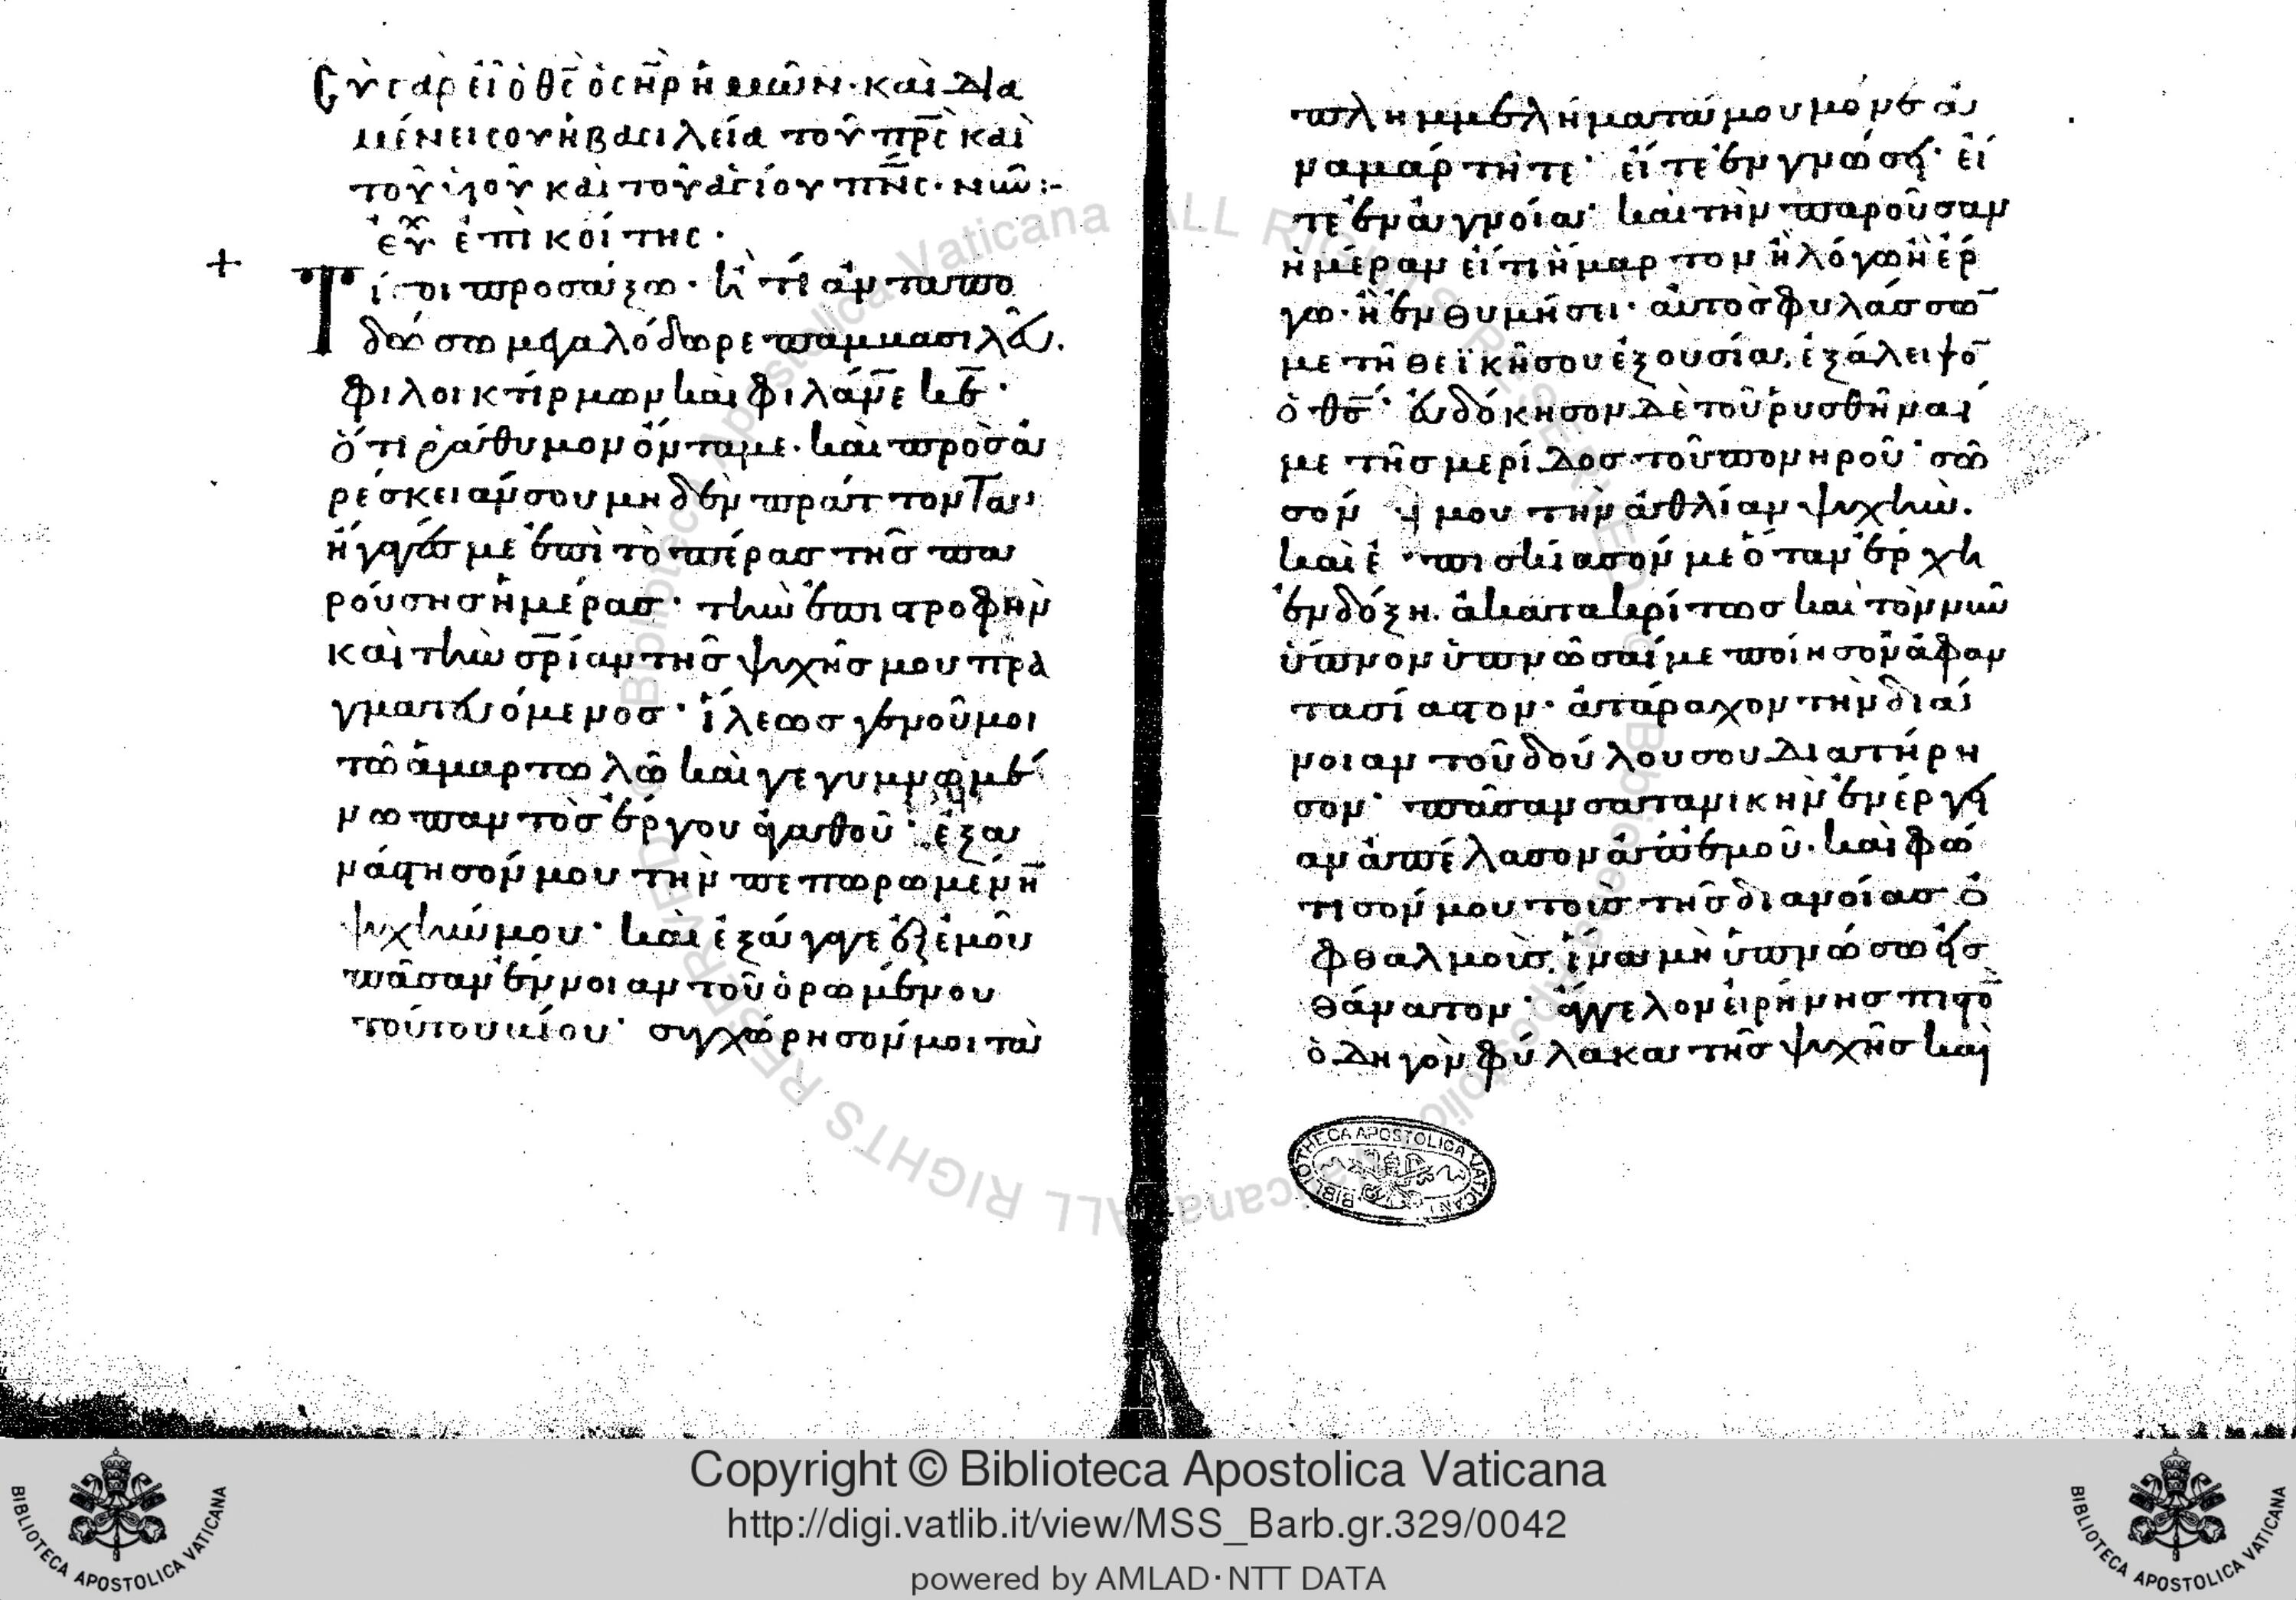 Σὺ γὰρ εἶ ὁ θς ὁ σηρ ἡμῶν· καὶ δια
μένει σου ἡ βασιλεία τοῦ πρς καὶ
τοῦ ὑιοῦ καὶ τοῦ ἁγίου πνς· νῦν:-
εὐχ ἐπὶ κοίτης·
+
Τί σοι προσάξω· ἢ τί ἀνταπο
δώσω μεγαλόδωρε παμβασιλεῦ.
φιλοικτίρμων καὶ φιλάνε κε·
ὅτι ῥάθυμον ὄντα με· καὶ πρὸς ἀ
ρέσκειάν σου μηδὲν πράττοντα,
ἤγαγές με ἐπὶ τὸ πέρας τῆς πα
ρούσης ἡμέρας· τὴν ἐπιστροφὴν
καὶ τὴν σρίαν τῆς ψυχῆς μου πρα
γματευόμενος· ἵλεως γενοῦ μοι
τῶ ἁμαρτωλῶ καὶ γεγυμνωμέ
νω παντὸς ἔργου ἀγαθοῦ· ἐξα
νάστησόν μου τὴν πεπωρωμένην
ψυχήν μου· καὶ ἐξάγαγε ἐξ ἐμοῦ
πᾶσαν ἔννοιαν τοῦ ὁρωμένου
τούτου βίου· συγχώρησόν μοι τὰ
πλημμελήματά μου μόνε ἀ
ναμάρτητε· εἴτε ἐν γνώσει· εἴ
τε ἐν ἀγνοία· καὶ τὴν παροῦσαν
ἡμέραν εἴ τι ἥμαρτον ἢ λόγω ἢ ἔρ
γω· ἢ ἐνθυμήσει· αὐτὸς φυλάσσων
με τῆ θεϊκῆ σου ἐξουσία, ἐξάλειψον
ὁ θς· εὐδόκησον δὲ τοῦ ῥυσθῆναί
με τῆς μερίδος τοῦ πονηροῦ· σῶ
σόν μου τὴν ἀθλίαν ψυχήν.
καὶ ἐπισκίασόν με ὅταν ἔρχη
ἐν δόξη. ἀκατακρίτως καὶ τὸν νῦν
ὕπνον ὑπνῶσαί με ποίησον ἀφαν
τασίαστον· ἀτάραχον τὴν διά
νοιαν τοῦ δούλου σου διατήρη
σον· πᾶσαν σατανικὴν ἐνέργει
αν ἀπέλασον ἀπ᾽ ἐμοῦ· καὶ φώ
τισόν μου τοὺς τῆς διανοίας ὀ
φθαλμοὺς, ἵνα μὴ ὑπνώσω εἰς
θάνατον· ἄγγελον εἰρήνης πιστὸν
ὁδηγὸν φύλακα τῆς ψυχῆς καὶ
BIBLIOTHECA APOSTOLICA VATICANA
Copyright © Biblioteca Apostolica Vaticana
http://digi.vatlib.it/view/MSS_Barb.gr.329/0042
powered by AMLAD·NTT DATA